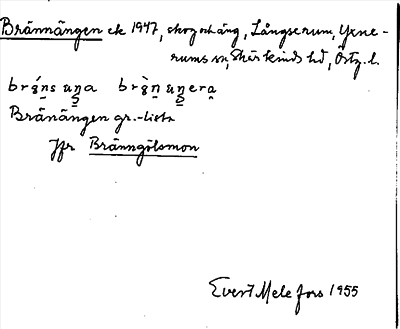 Brännängen ek 1947, skog och äng, Långserum, Yxne-
rums sn, Skärkinds hd, Östg. l.
Bränängen gr.-lista
Jfr Bränngölsmon
Evert Melefors 1955